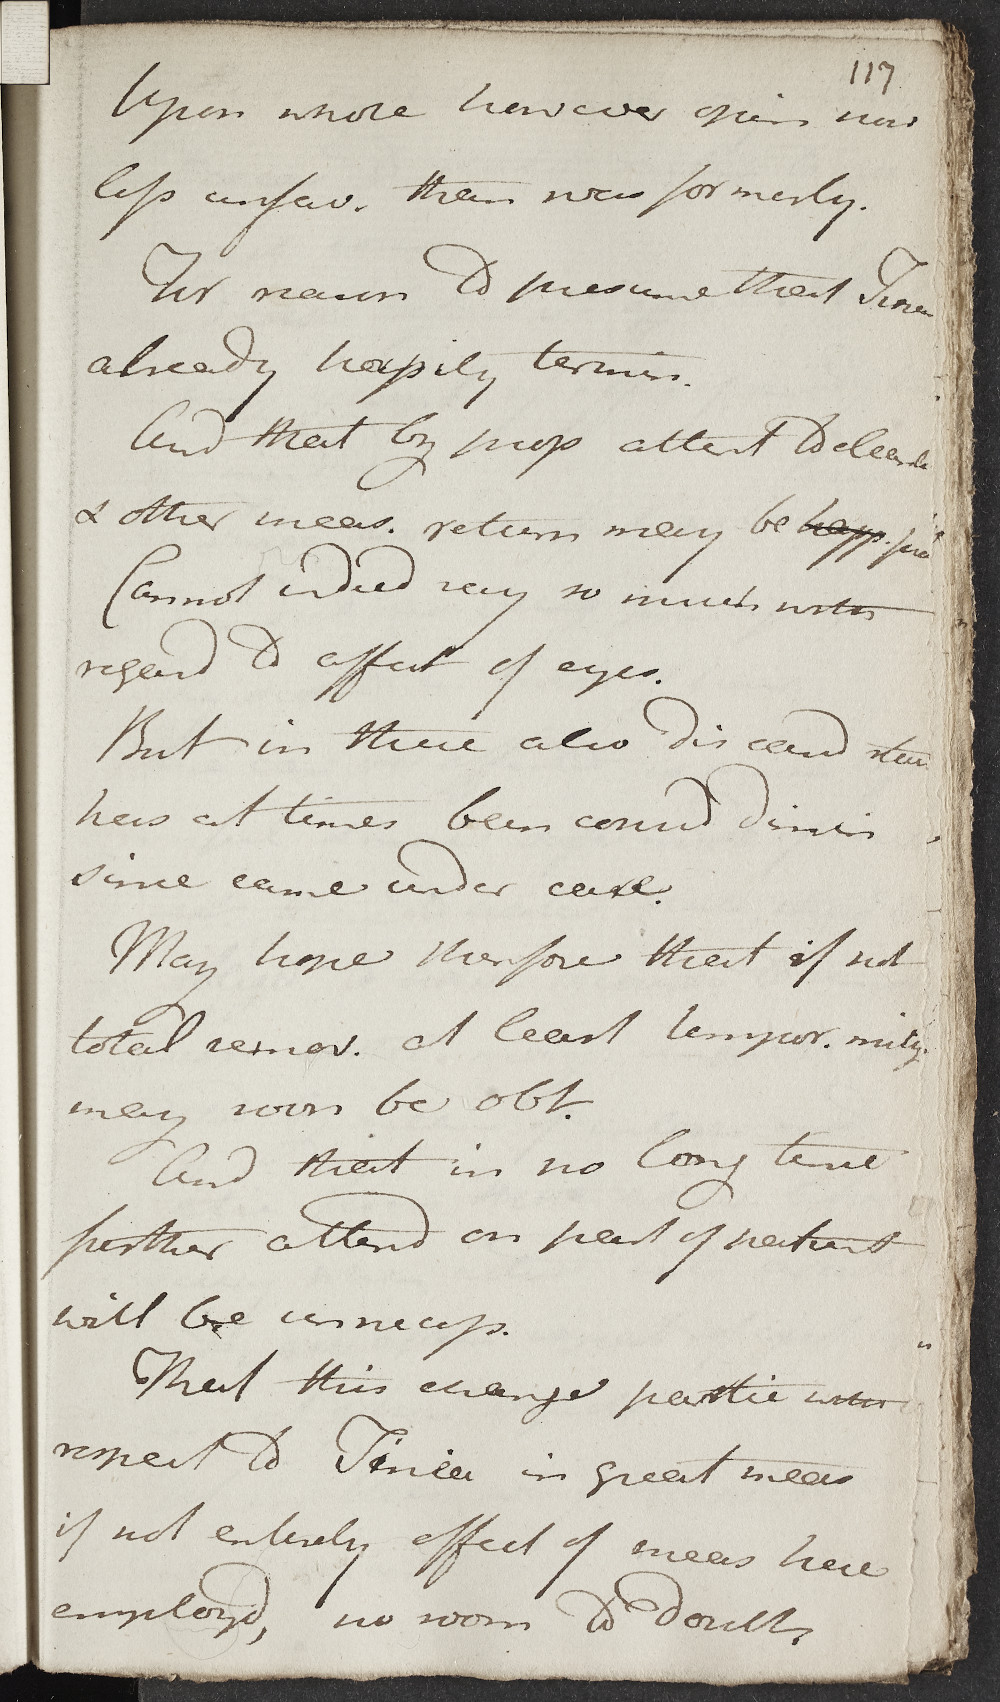 117
Upon whole however opin now
less unfav. than was formerly.
For reason to presume that Tinea
already happily termin.
And that by prop attent to cleanl
& other meas. return may be happ. pre
Cannot indeed say so much with
regard to affect of eyes.
But in these also disease and
has at times been consid dimin
since came under care.
May hope therefore that if not
total remov. at least tempor. mitig.
may soon be obt.
And that in no long time
further attend on part of patient
will be unnecess.
That this change partic with
respect to Tinea in great meas
if not entirely effect of meas here
employd, no room to doubt,